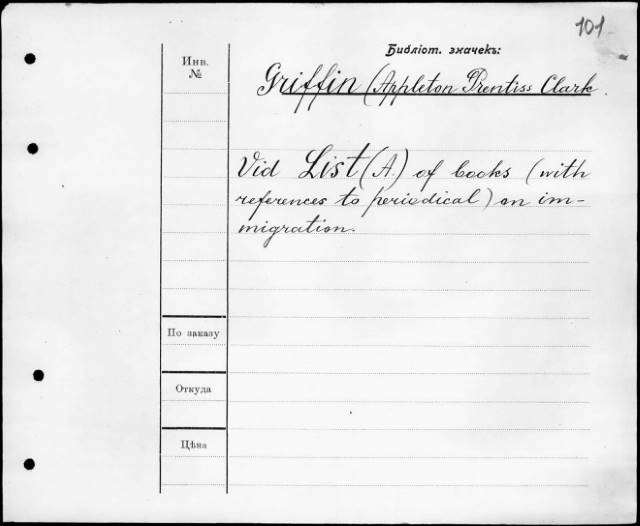 101
Библіот. значекъ:
Инв.
№
Griffin (Appleton Prentiss Clark
Vid List (A.) of books (with
references to periodical) on im-
migration.
По заказу
Откуда
Цѣна